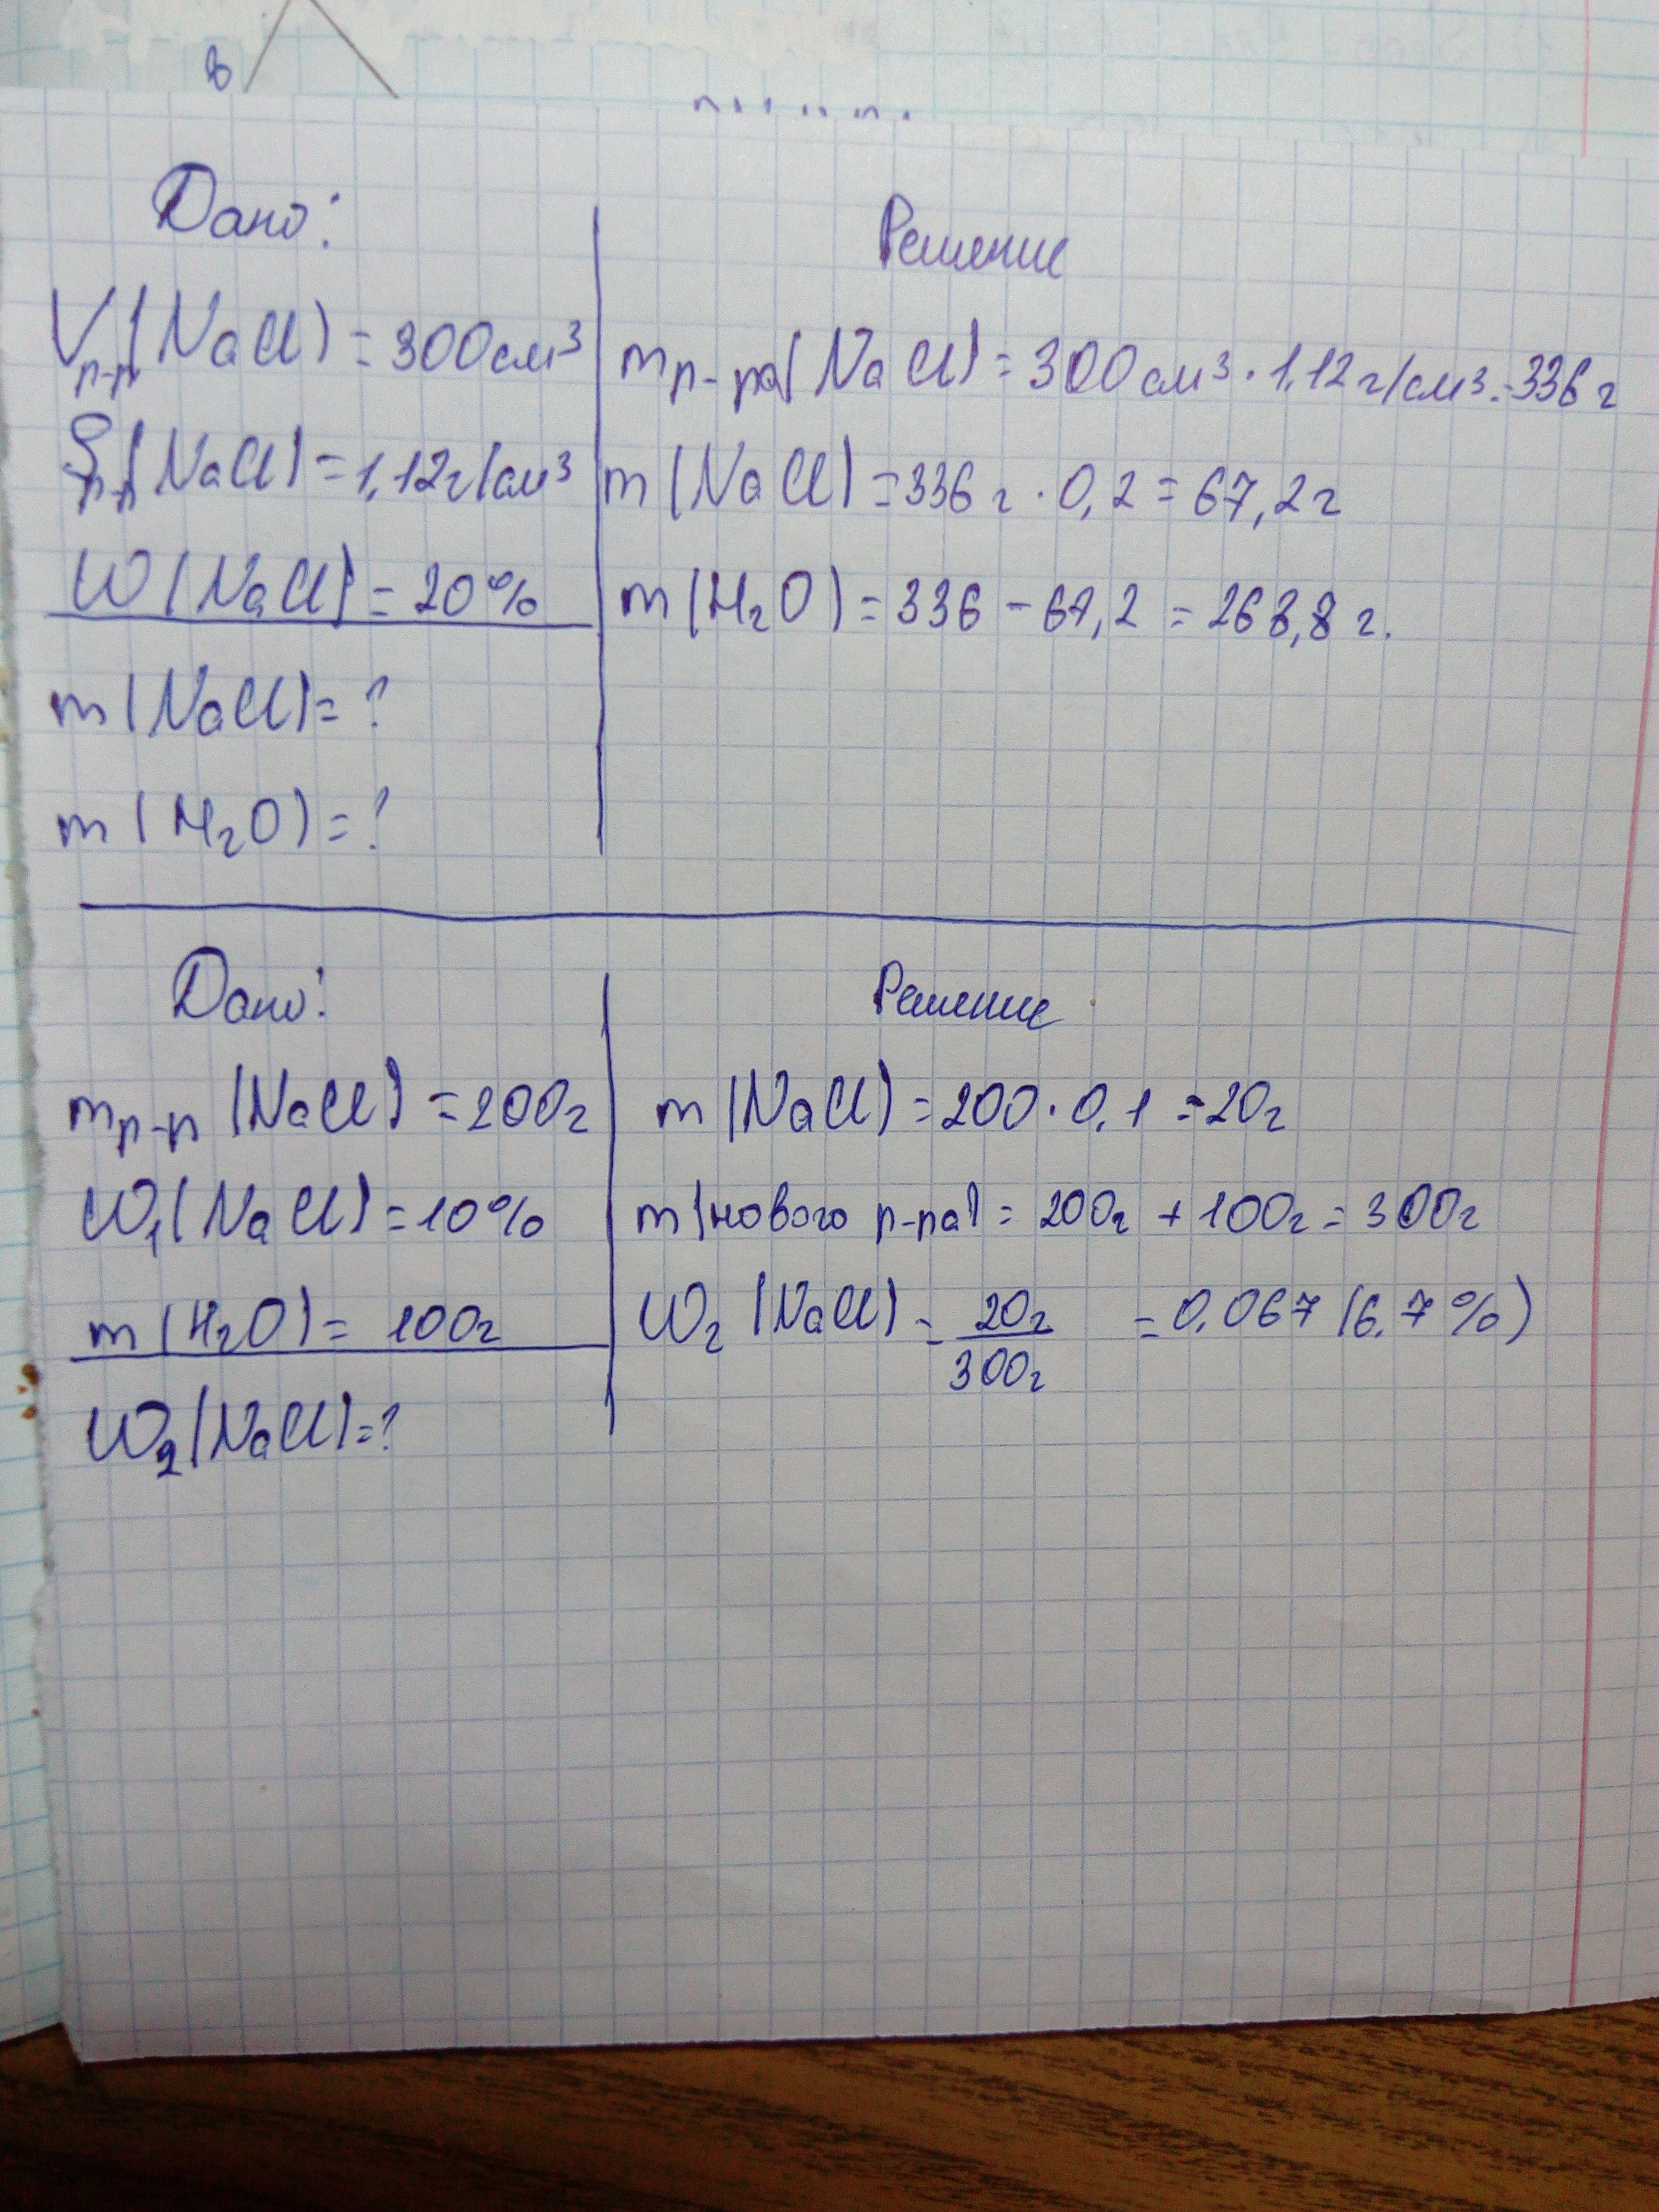 в
Дано:
Vр-р(NaCl) = 300см³
ρр-р(NaCl) = 1,12г/см³
W(NaCl) = 20%
m(NaCl) = ?
m(H₂O) = ?
Решение
mр-ра(NaCl) = 300см³ · 1,12г/см³ = 336г
m(NaCl) = 336г · 0,2 = 67,2г
m(H₂O) = 336 - 67,2 = 268,8г.
Дано:
mр-р(NaCl) = 200г
W₁(NaCl) = 10%
m(H₂O) = 100г
W₂(NaCl) = ?
Решение
m(NaCl) = 200 · 0,1 = 20г
m(нового р-ра) = 200г + 100г = 300г
W₂(NaCl) = 20г/300г = 0,067 (6,7%)